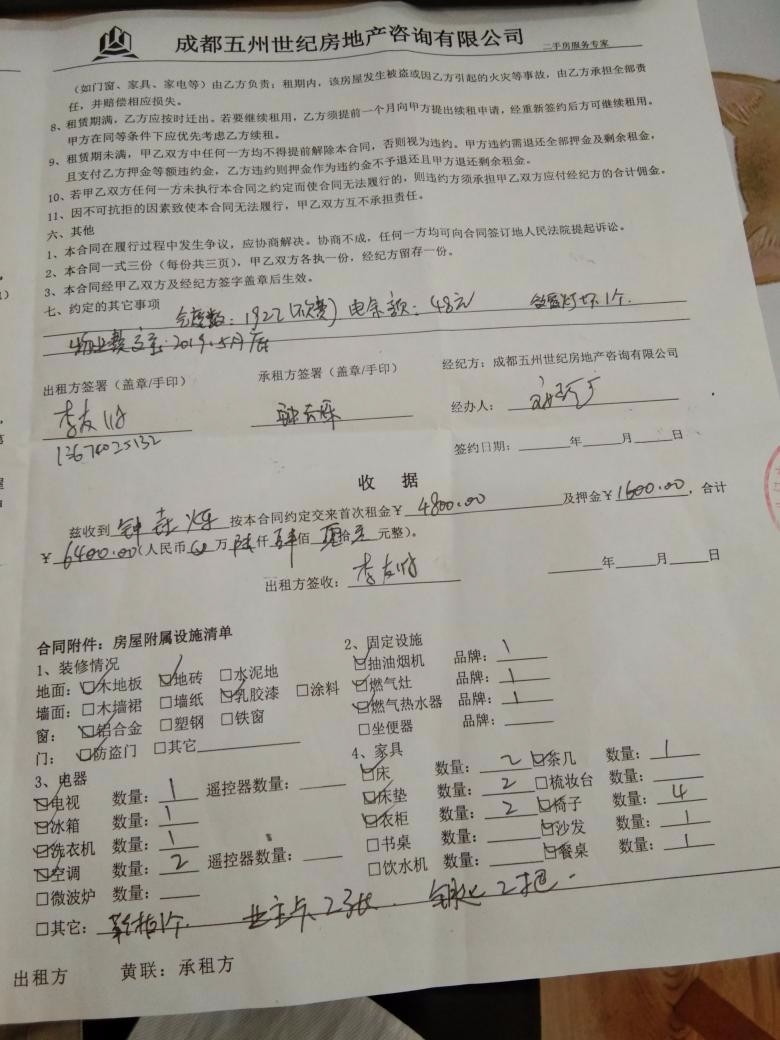 成都五州世纪房地产咨询有限公司 二手房服务专家
（如门窗、家具、家电等）由乙方负责；租期内，该房屋发生被盗或因乙方引起的火灾等事故，由乙方承担全部责
任，并赔偿相应损失。
8、租赁期满，乙方应按时迁出。若要继续租用，乙方须提前一个月向甲方提出续租申请，经重新签约后方可继续租用。
甲方在同等条件下应优先考虑乙方续租。
9、租赁期未满，甲乙双方中任何一方均不得提前解除本合同，否则视为违约。甲方违约需退还全部押金及剩余租金，
且支付乙方押金等额违约金，乙方违约则押金作为违约金不予退还且甲方退还剩余租金。
10、若甲乙双方任何一方未执行本合同之约定而使合同无法履行的，则违约方须承担甲乙双方应付经纪方的合计佣金。
11、因不可抗拒的因素致使本合同无法履行，甲乙双方互不承担责任。
六、其他
1、本合同在履行过程中发生争议，应协商解决。协商不成，任何一方均可向合同签订地人民法院提起诉讼。
2、本合同一式三份（每份共三页），甲乙双方各执一份，经纪方留存一份。
3、本合同经甲乙双方及经纪方签字盖章后生效。
七、约定的其它事项 气度数：1922（欠费） 电余额：48元 灯坏1个.
物业费交至：2019.5月底
出租方签署（盖章/手印） 承租方签署（盖章/手印） 经纪方：成都五州世纪房地产咨询有限公司
李友 经办人：
13674025132 签约日期：____年____月____日
收 据
兹收到 钟 按本合同约定交来首次租金￥ 4800.00 及押金￥1600.00，合计
￥6400.00（人民币 万 陆仟 肆佰 零拾 元整）。
出租方签收：李友 ____年____月____日
合同附件：房屋附属设施清单
1、装修情况 2、固定设施
地面：☑木地板 ☑地砖 □水泥地 ☑抽油烟机 品牌：1
墙面：□木墙裙 □墙纸 ☑乳胶漆 □涂料 ☑燃气灶 品牌：1
窗：☑铝合金 □塑钢 □铁窗 ☑燃气热水器 品牌：1
门：☑防盗门 □其它________ □坐便器 品牌：____
3、电器 4、家具
☑电视 数量：1 遥控器数量：____ ☑床 数量：2 ☑茶几 数量：1
☑冰箱 数量：1 ☑床垫 数量：2 □梳妆台 数量：____
☑洗衣机 数量：1 ☑衣柜 数量：2 ☑椅子 数量：4
☑空调 数量：2 遥控器数量：____ □书桌 数量：____ ☑沙发 数量：1
□微波炉 数量：____ □饮水机 数量：____ ☑餐桌 数量：1
□其它：鞋柜1个 业主卡2张 钥匙2把.
出租方 黄联：承租方